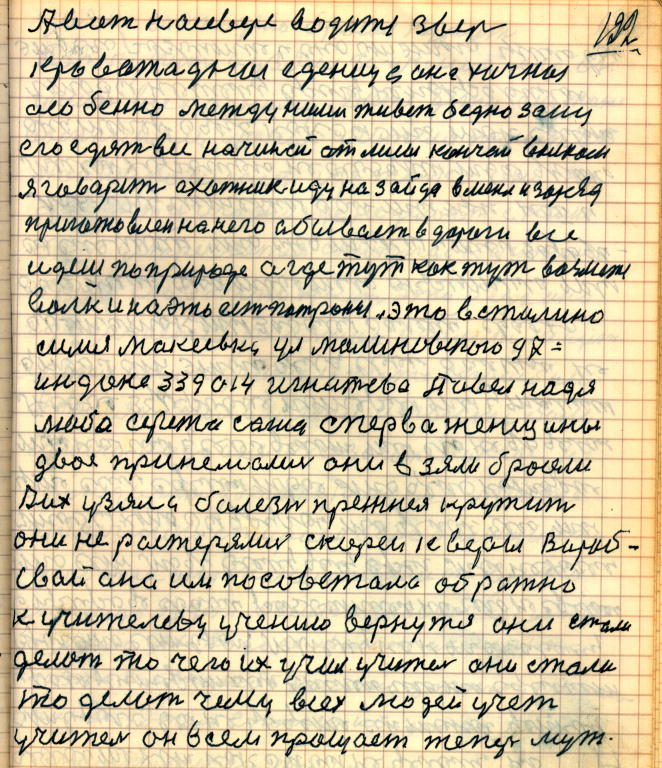 199.
А вот на севере водится звер
кръвожадныи еденица она хичныи
особенно между ними живет бедно заиц
его едят все начиной от лисы кончой волком
я говарит охотник иду на зайца в меня изаряд
приготовлен на него а бывает в дороги все
идеш по природе а где тут как тут возмется
волк и на эть ест патроны. это в сталино
симя Макеевка ул малиновского 97=
индекс 339014 игнатева Павел надя
люба сережа саша сперва женщины
двоя принемали они взяли бросели
В их узяла балезн прежнея крутит
они не растерялис скореи к верои Вараб-
евай она им посоветала обратно
к учителеву учению вернутся они стали
делат то чего их учил учител они стали
то делат чему всех людей учет
учител он всем прощает тепер муж.